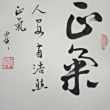 正氣
人要有浩然
正氣